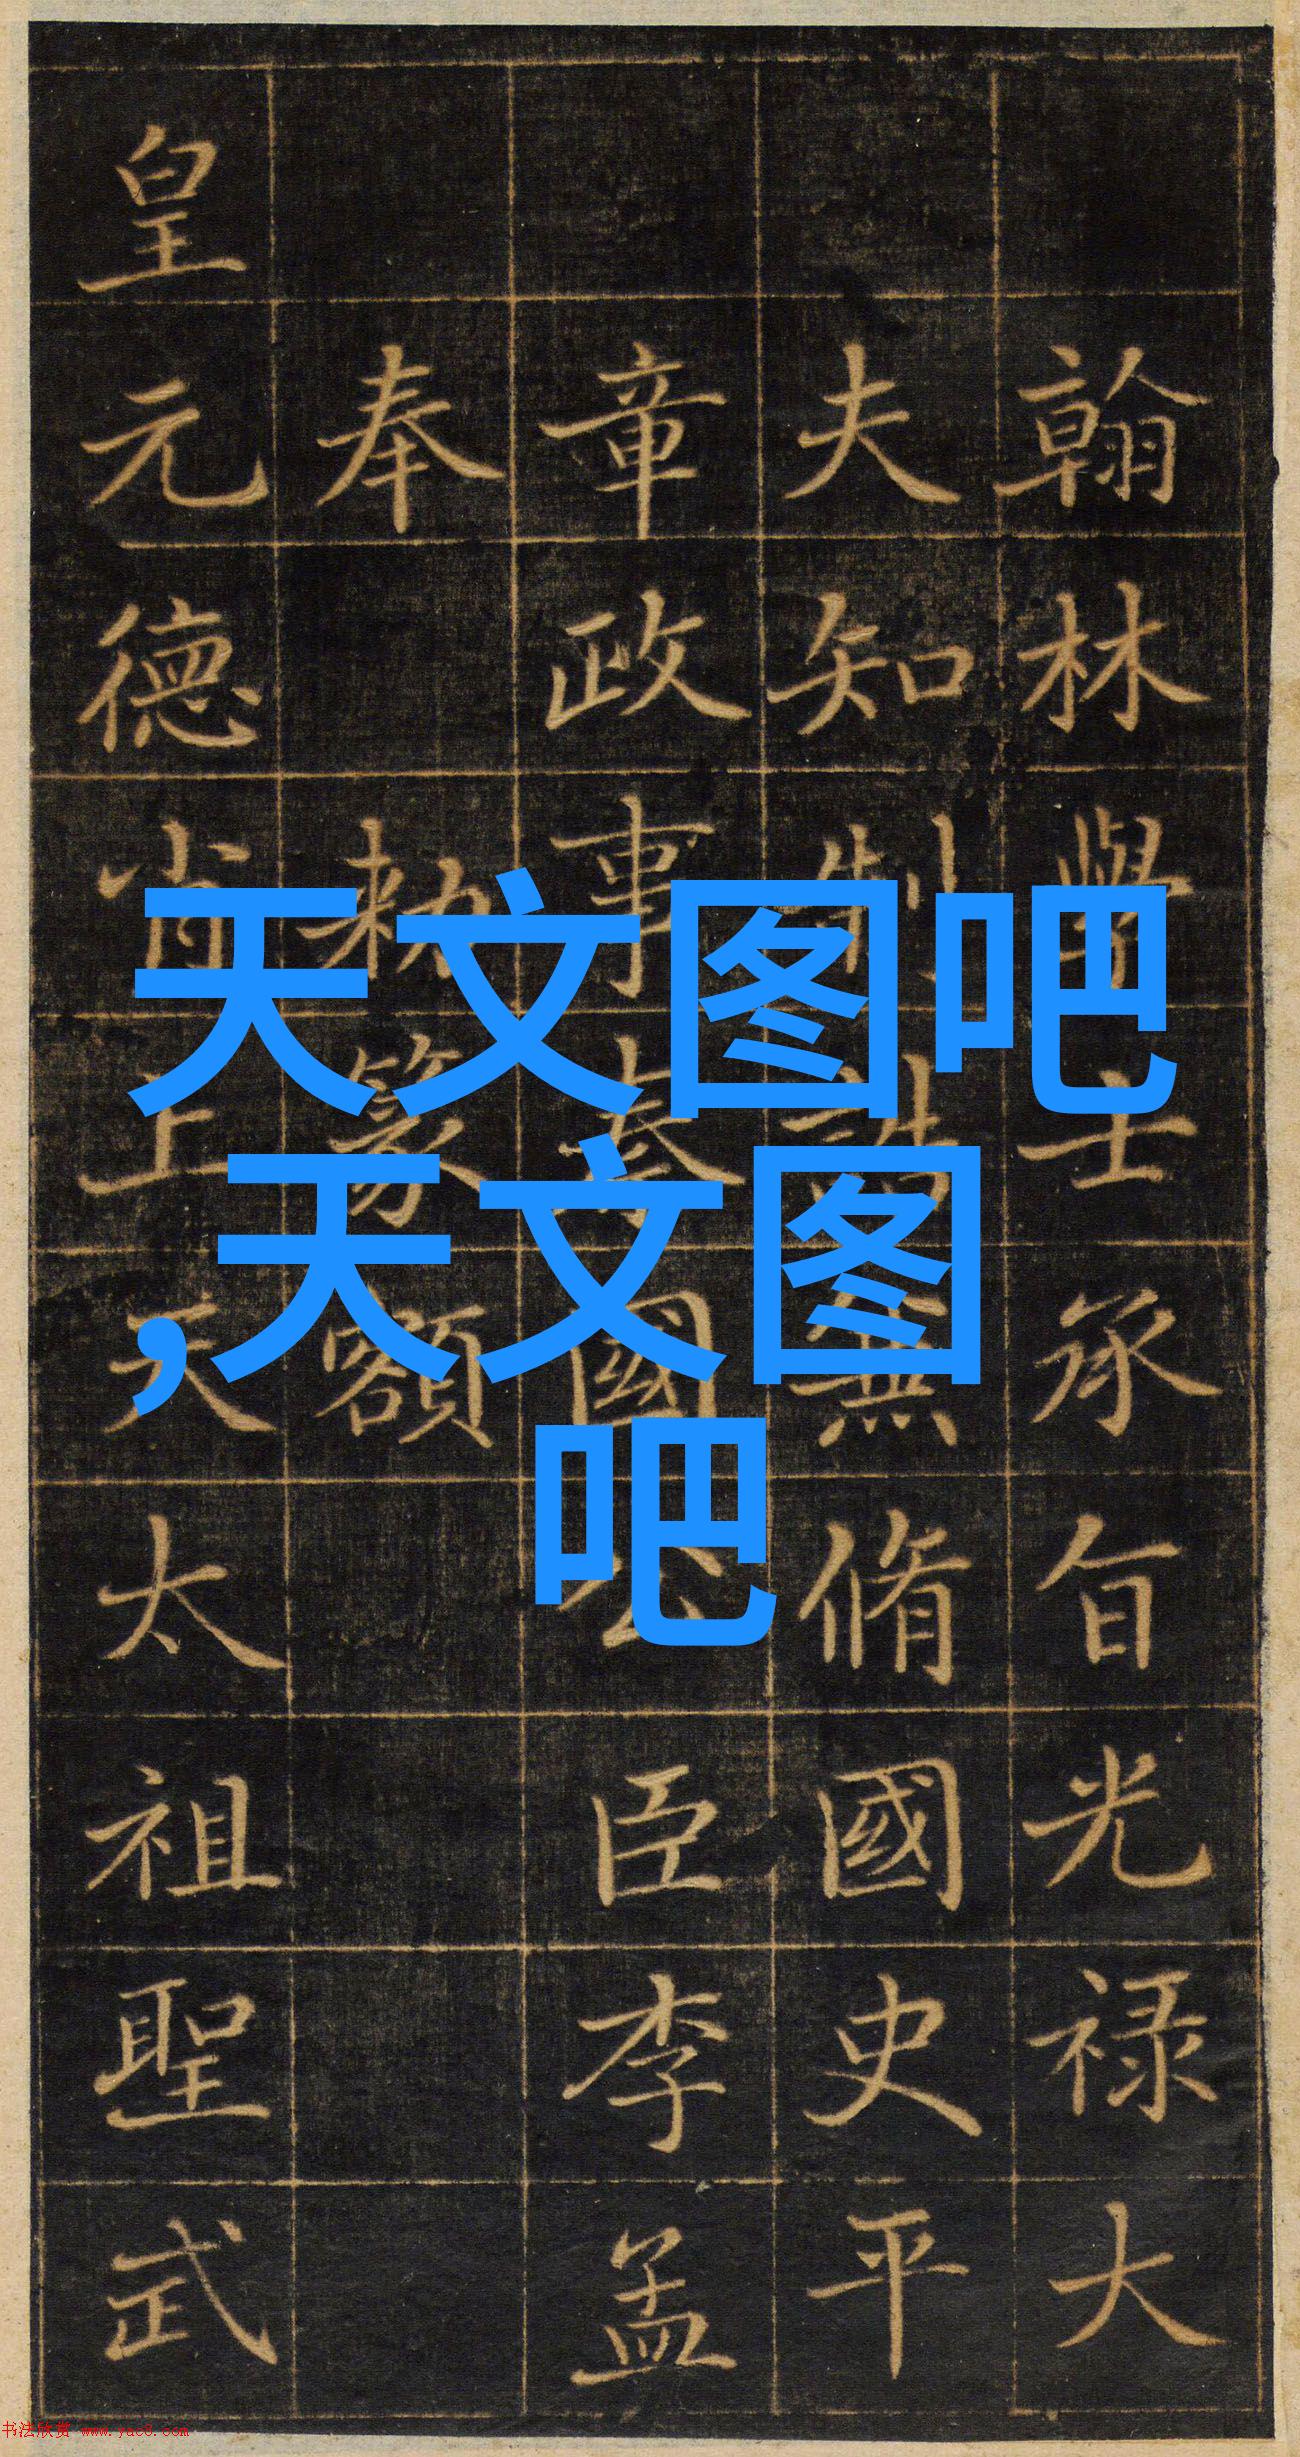 翰林學士承旨光禄大
夫知制誥兼脩國史平
章政事秦國公臣李孟
奉 勅篆額
皇元德肖上天太祖聖武
天文图吧
,天文图
吧
书法欣赏 www.yac8.com